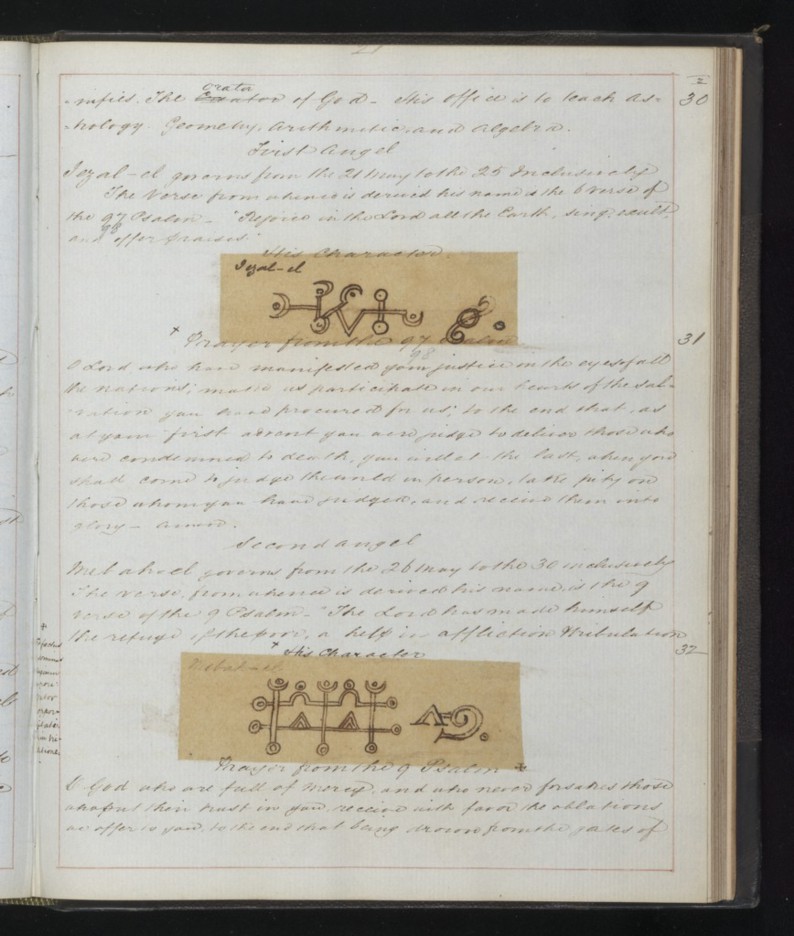 -nifies. The Orator of God - His office is to teach as=
-trology Geometry, arithmetic, and algebra.
30
First Angel
Iezal-el governs from the 21 May to the 25 Inclusively
The Verse from whence is derived his name is the 6 verse of
the 97 Psalm - "Rejoice in the Lord all the Earth, sing, exult,
98
and offer praises"
His Character.
Iezal-el
+ Prayer from the 97 Psalm
31
98
O Lord who have manifested your justice in the eyes of all
the nations; make us participate in our hearts of the sal-
-vation you have procured for us; to the end that, as
at your first advent you were judge to deliver those who
were condemned to death, you will at the last, when you
shall come to judge the world in person, take pity on
those whom you have judged, and receive them into
glory - amen.
Second Angel
Mebahel governs from the 26 May to the 30 inclusively
The verse, from whence is derived his name, is the 9
verse of the 9 Psalm - "The Lord has made himself
the refuge of the poor, a help in affliction & tribulation
+ His Character
32
Mebah-el
Prayer from the 9 Psalm
O God who are full of mercy, and who never forsakes those
who put their trust in you, receive with favor the oblations
we offer to you, to the end that being drawn from the gates of